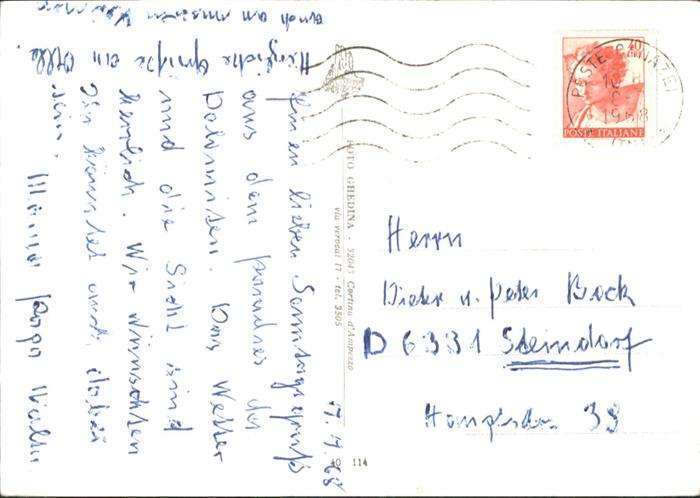 17.7.68
Einen lieben Sonntagsgruß
aus dem Paradies der
Dolomiten. Das Wetter
und die Sicht sind
herrlich. Wir wünschten
Ihr könntet auch dabei
sein. Mama Papa
Herzliche Grüße an
auch an unseren
FOTO GHEDINA - 32043 Cortina d'Ampezzo
via verocai 17 - tel. 3505
40 114
40
1968
POSTE ITALIANE
Herrn
Dieter u. Peter Bock
D 6331 Steindorf
39